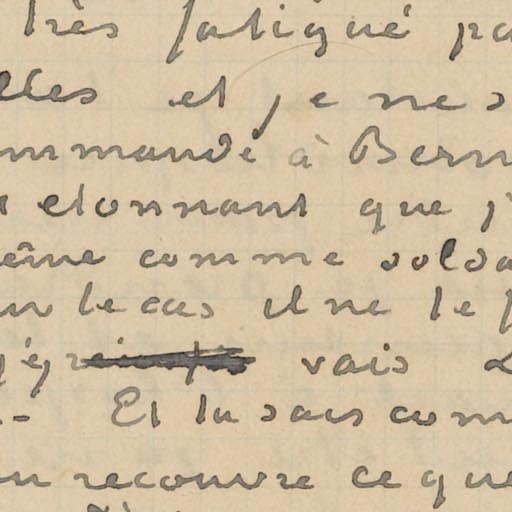 très fatigué pa
elles et je ne s
ommandé à Bern
étonnant que j'
ême comme solda
le cas il ne le f
vais
Et tu sais com
recouvre ce que